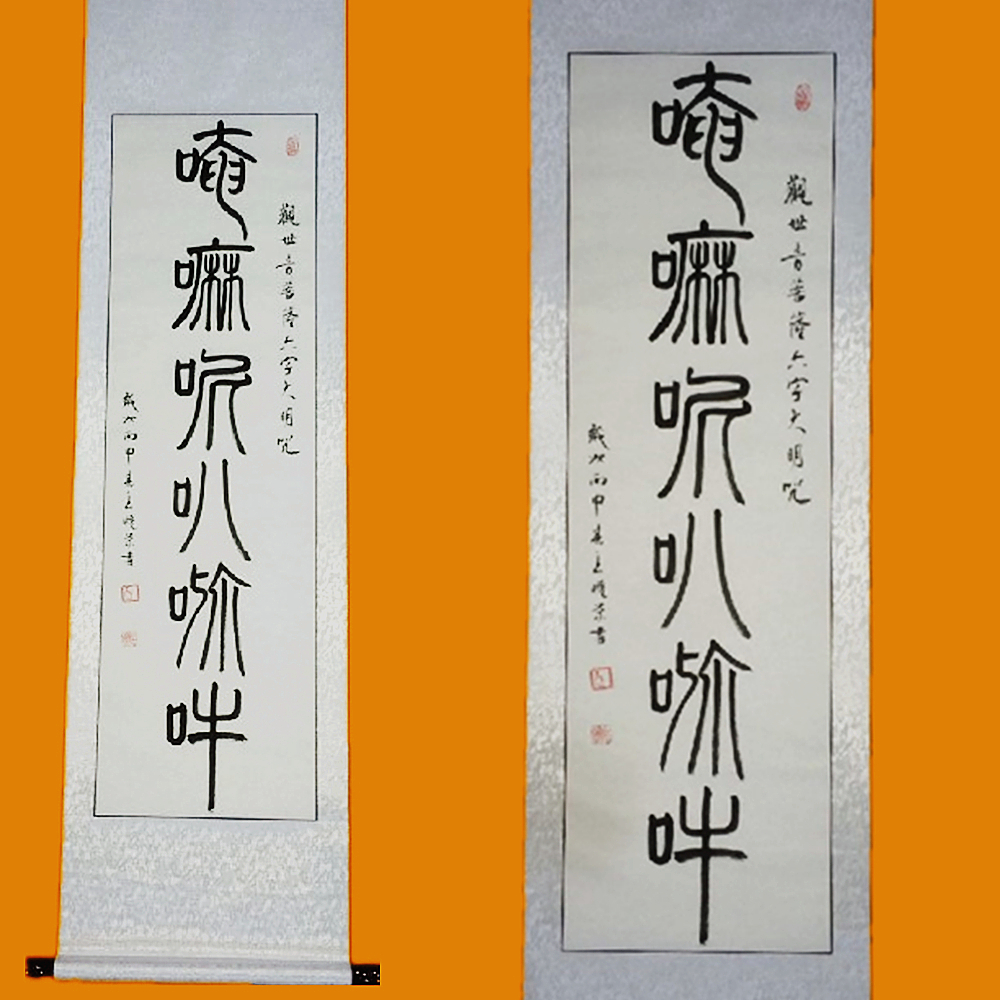 觀世音菩薩六字大明咒
唵嘛呢叭吽
歲次丙申春書
觀世音菩薩六字大明咒
唵嘛呢叭吽
歲次丙申春書